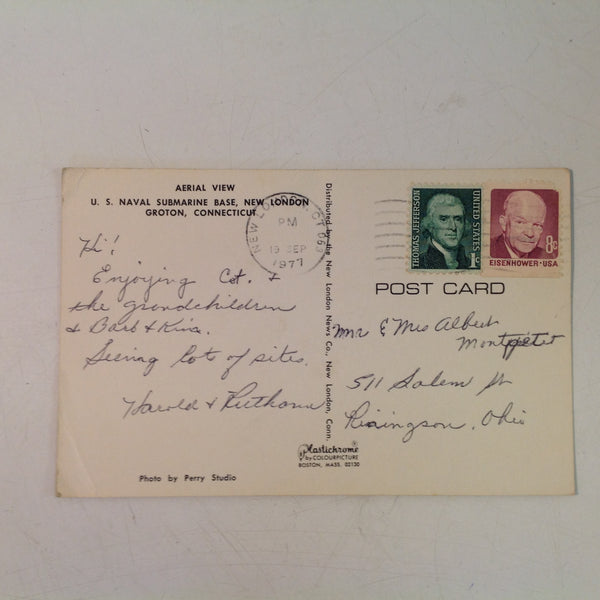 AERIAL VIEW
U. S. NAVAL SUBMARINE BASE, NEW LONDON
GROTON, CONNECTICUT
Hi!
Enjoying Cot. &
the grandchildren
& Barb &
Seeing lots of sites.
Harold & Ruthana
Photo by Perry Studio
Distributed by the New London News Co., New London, Conn.
NEW LONDON, CT 063
PM
19 SEP
1977
THOMAS JEFFERSON
UNITED STATES
1c
8c
EISENHOWER·USA
POST CARD
Mr & Mrs Albert
511 Salem St
Risingson, Ohio
Plastichrome®
by COLOURPICTURE
BOSTON, MASS. 02130